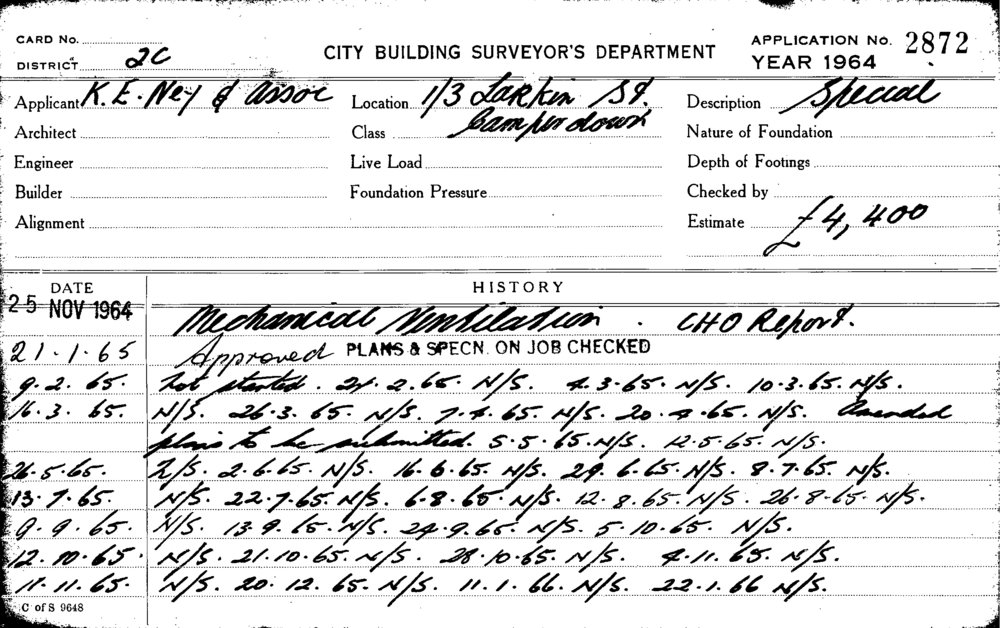 CARD No.
DISTRICT 2C
CITY BUILDING SURVEYOR'S DEPARTMENT
APPLICATION No. 2872
YEAR 1964
Applicant K. E. Ney & Assoc
Location 1/3 Larkin St.
Camperdown
Description Special
Architect
Class
Nature of Foundation
Engineer
Live Load
Depth of Footings
Builder
Foundation Pressure
Checked by
Alignment
Estimate £4,400
DATE
HISTORY
25 NOV 1964 Mechanical Ventilation. CHO Report.
21.1.65 Approved PLANS & SPECN. ON JOB CHECKED
9.2.65. Not started. 24.2.65. N/S. 4.3.65. N/S. 10.3.65. N/S.
16.3.65. N/S. 26.3.65. N/S. 7.4.65. N/S. 20.4.65. N/S. Amended
plans to be submitted. 5.5.65. N/S. 12.5.65. N/S.
26.5.65. N/S. 2.6.65. N/S. 16.6.65. N/S. 29.6.65. N/S. 8.7.65. N/S.
13.7.65. N/S. 22.7.65. N/S. 6.8.65. N/S. 12.8.65. N/S. 26.8.65. N/S.
9.9.65. N/S. 13.9.65. N/S. 24.9.65. N/S. 5.10.65. N/S.
12.10.65. N/S. 21.10.65. N/S. 28.10.65. N/S. 4.11.65. N/S.
11.11.65. N/S. 20.12.65. N/S. 11.1.66. N/S. 22.1.66 N/S.
C of S 9648